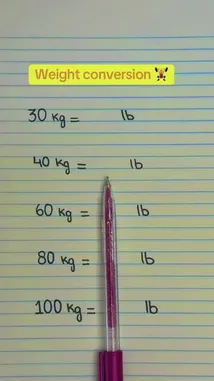 Weight conversion 🏋️
30 kg = lb
40 kg = lb
60 kg = lb
80 kg = lb
100 kg = lb